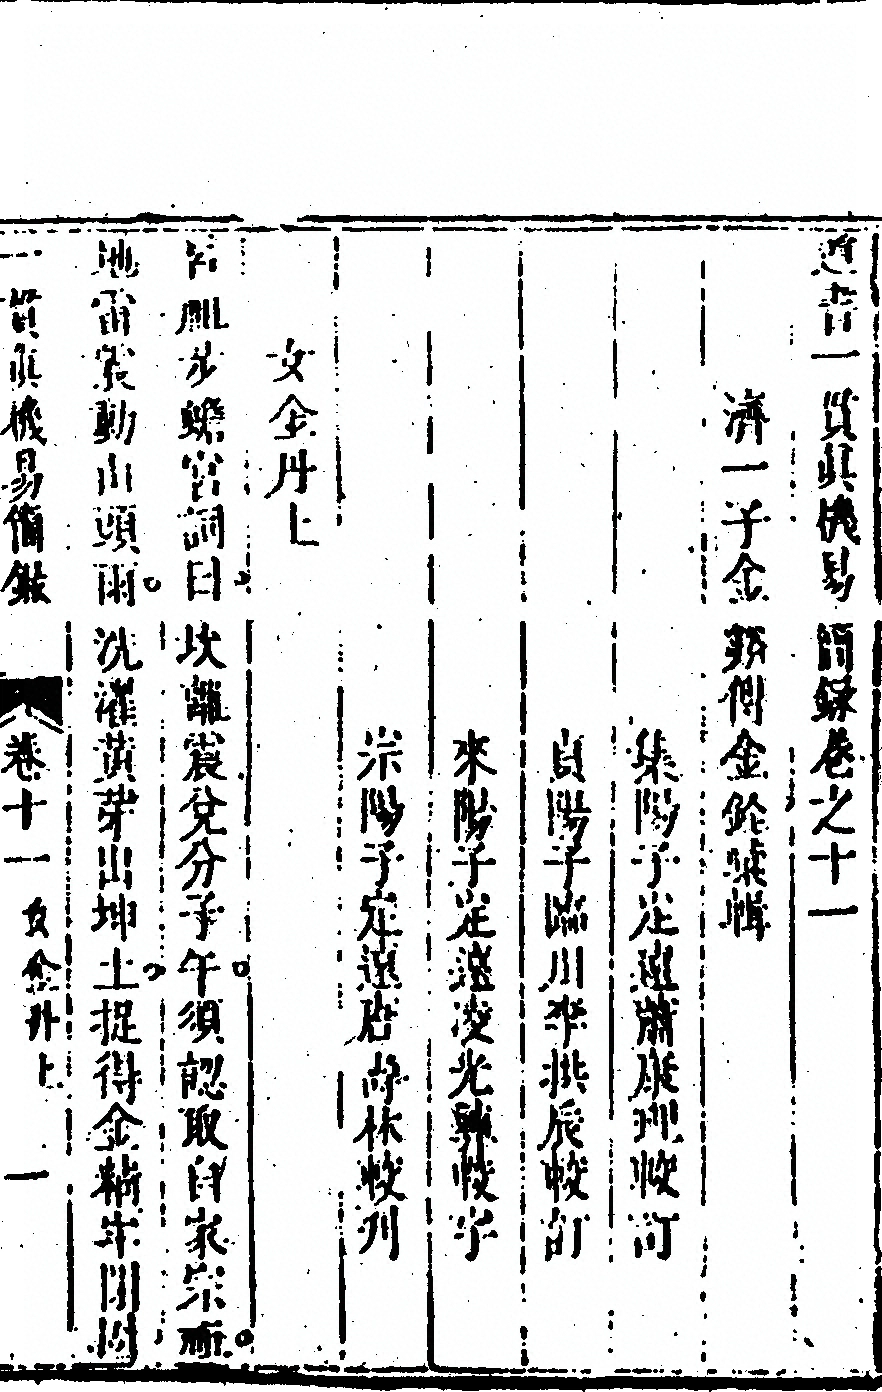 道書一貫真機易簡錄卷之十一
濟一子金谿傅金銓彙輯
集陽子定遠蕭康理校訂
貞陽子臨川李拱辰校訂
來陽子定遠凌光韓校字
宗陽子定遠唐靜林校刋
女金丹上
呂祖步蟾宮詞曰坎離震兌分子午須認取自家宗祖
地雷震動山頭雨洗濯黃芽出坤土捉得金精牢閉固
一貫真機易簡錄 卷十一 女金丹上 一